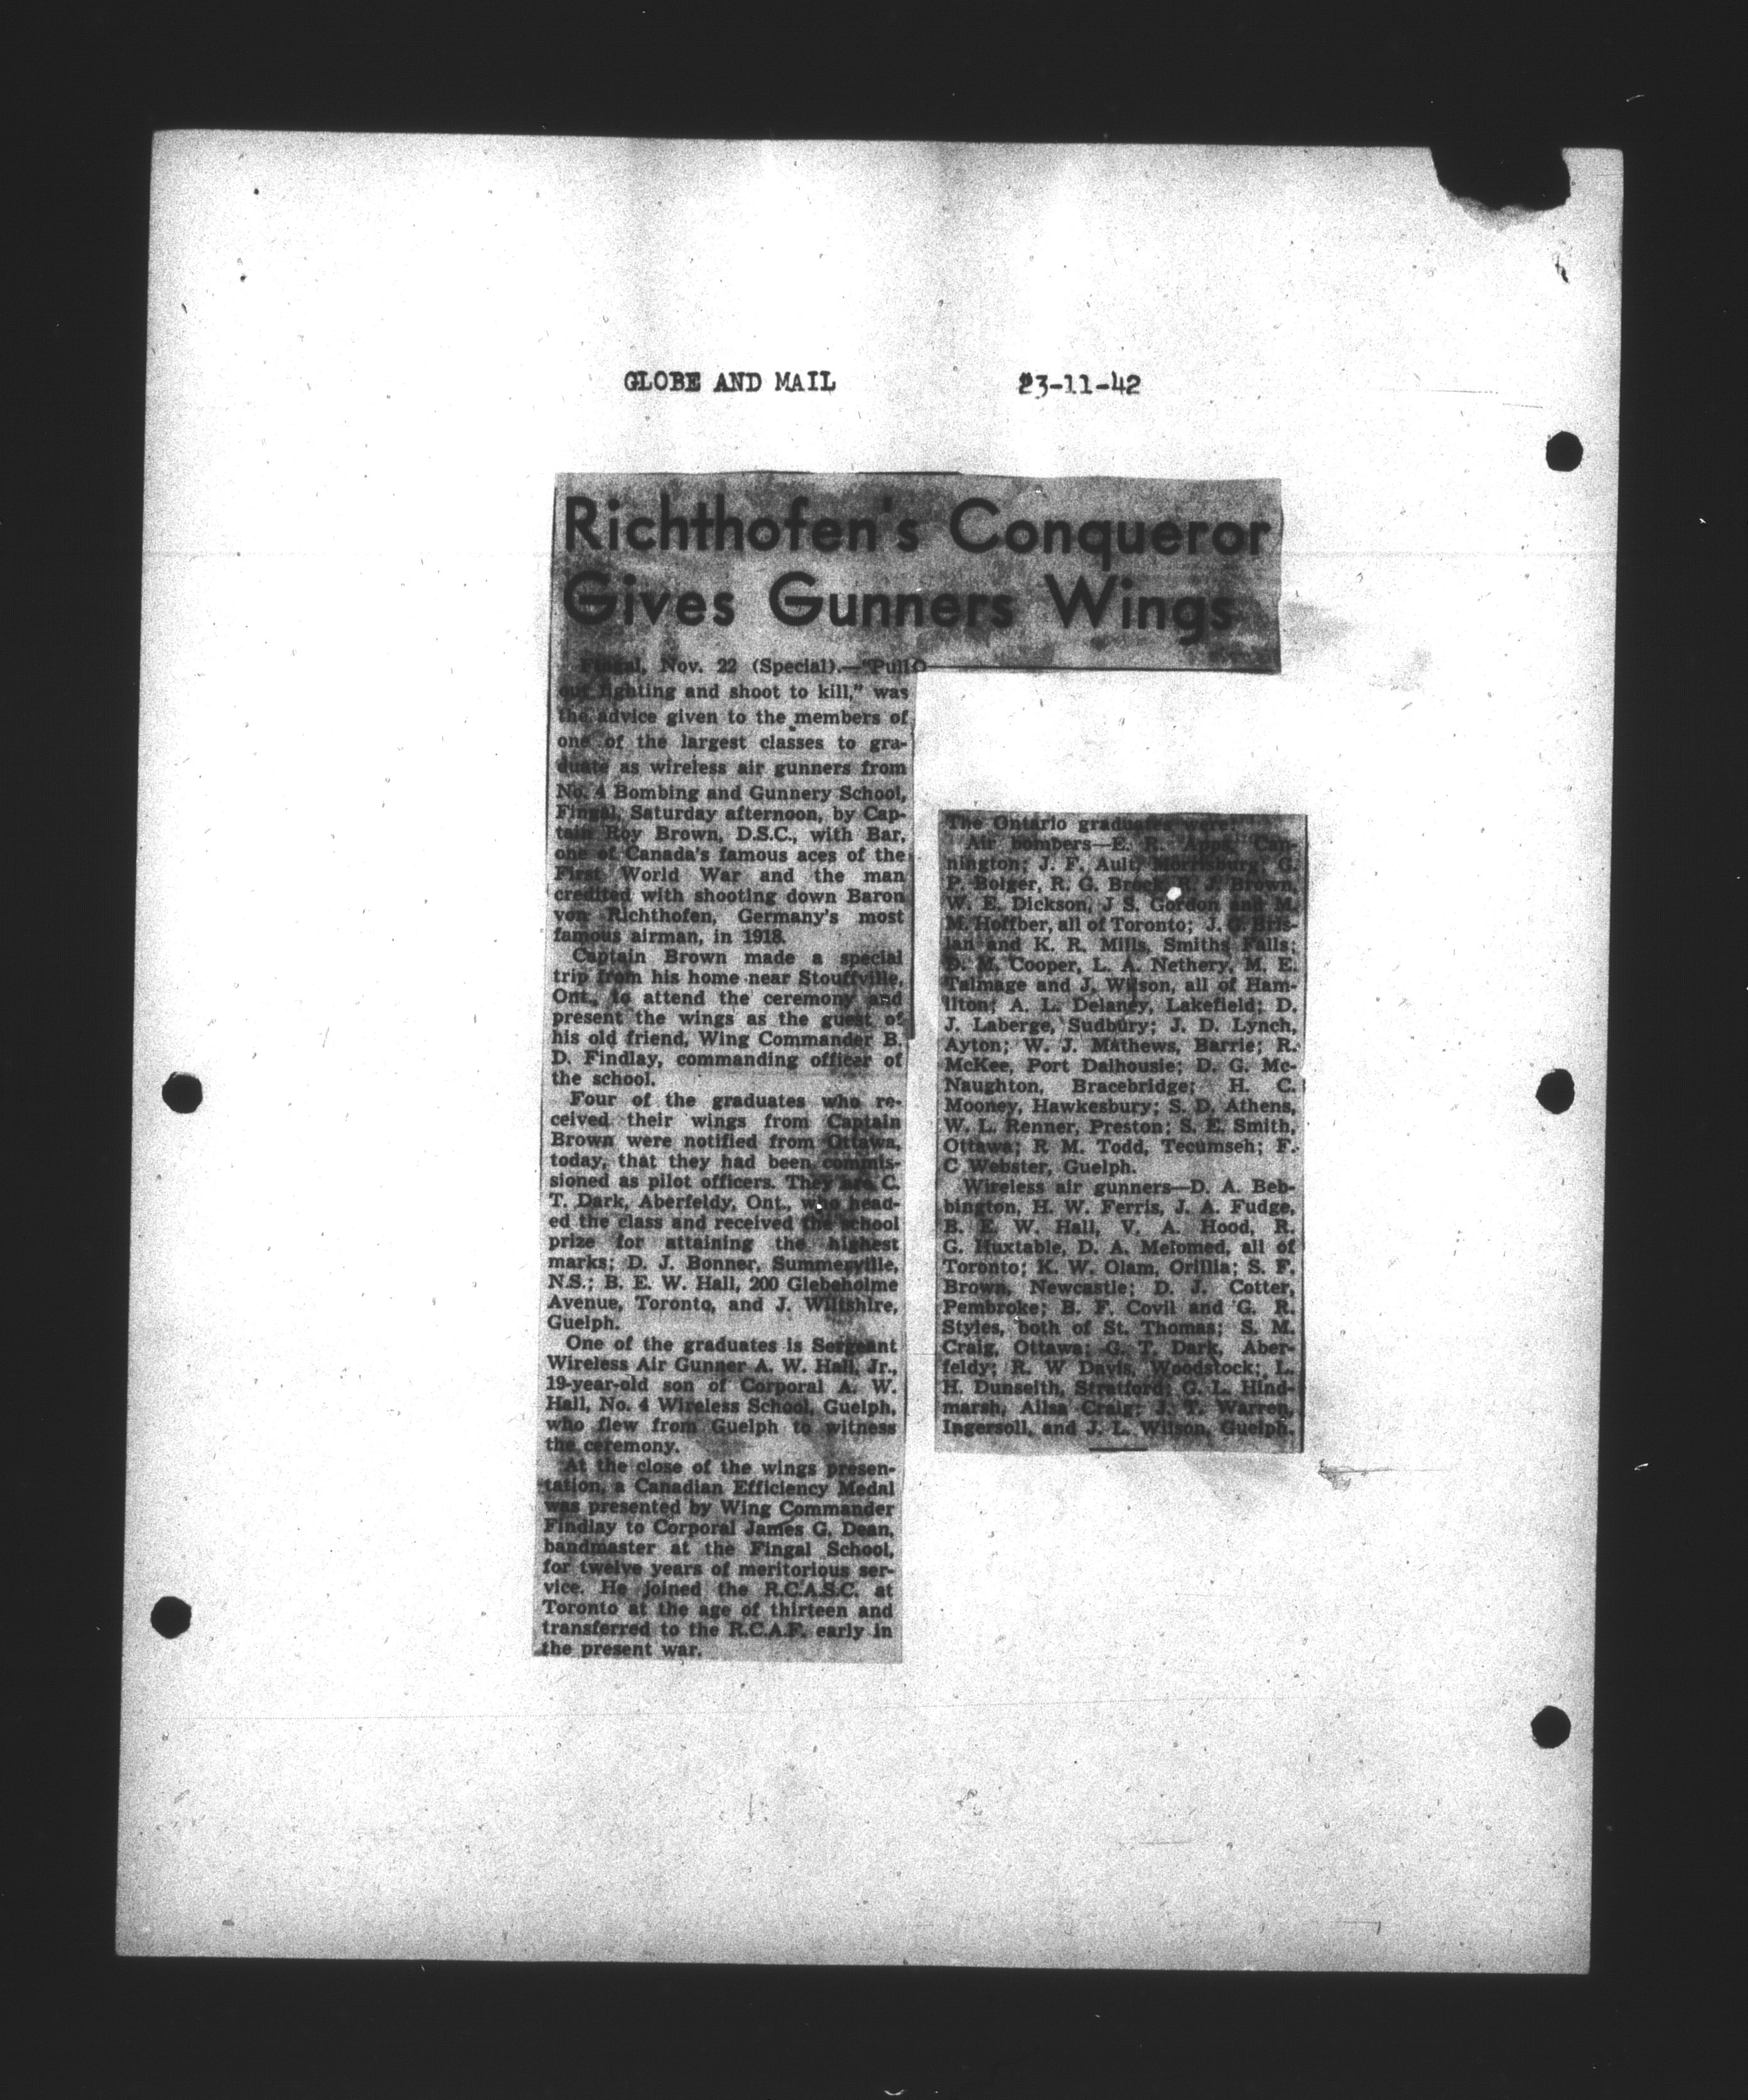 GLOBE AND MAIL 23-11-42
Richthofen's Conqueror
Gives Gunners Wings
Fingal, Nov. 22 (Special).—"Pull
out fighting and shoot to kill," was
the advice given to the members of
one of the largest classes to gra-
duate as wireless air gunners from
No. 4 Bombing and Gunnery School,
Fingal, Saturday afternoon, by Cap-
tain Roy Brown, D.S.C., with Bar,
one of Canada's famous aces of the
First World War and the man
credited with shooting down Baron
von Richthofen, Germany's most
famous airman, in 1918.
Captain Brown made a special
trip from his home near Stouffville,
Ont., to attend the ceremony and
present the wings as the guest of
his old friend, Wing Commander B.
D. Findlay, commanding officer of
the school.
Four of the graduates who re-
ceived their wings from Captain
Brown were notified from Ottawa,
today, that they had been commis-
sioned as pilot officers. They are C.
T. Dark, Aberfeldy, Ont., who head-
ed the class and received the school
prize for attaining the highest
marks; D. J. Bonner, Summerville,
N.S.; B. E. W. Hall, 200 Glebeholme
Avenue, Toronto, and J. Wiltshire,
Guelph.
One of the graduates is Sergeant
Wireless Air Gunner A. W. Hall, Jr.,
19-year-old son of Corporal A. W.
Hall, No. 4 Wireless School, Guelph,
who flew from Guelph to witness
the ceremony.
At the close of the wings presen-
tation, a Canadian Efficiency Medal
was presented by Wing Commander
Findlay to Corporal James G. Dean,
bandmaster at the Fingal School,
for twelve years of meritorious ser-
vice. He joined the R.C.A.S.C. at
Toronto at the age of thirteen and
transferred to the R.C.A.F. early in
the present war.
The Ontario graduates were:
Air bombers—E. R. Apps, Can-
nington; J. F. Ault, Morrisburg; G.
P. Bolger, R. G. Brock, R. J. Brown,
W. E. Dickson, J S. Gordon and M.
M. Hoffber, all of Toronto; J. G. Bris-
lan and K. R. Mills, Smiths Falls;
D. M. Cooper, L. A. Nethery, M. E.
Talmage and J. Wilson, all of Ham-
ilton; A. L. Delaney, Lakefield; D.
J. Laberge, Sudbury; J. D. Lynch,
Ayton; W. J. Mathews, Barrie; R.
McKee, Port Dalhousie; D. G. Mc-
Naughton, Bracebridge; H. C.
Mooney, Hawkesbury; S. D. Athens,
W. L. Renner, Preston; S. E. Smith,
Ottawa; R M. Todd, Tecumseh; F.
C Webster, Guelph.
Wireless air gunners—D. A. Beb-
bington, H. W. Ferris, J. A. Fudge,
B. E. W. Hall, V. A. Hood, R.
G. Huxtable, D. A. Melomed, all of
Toronto; K. W. Olam, Orillia; S. F.
Brown, Newcastle; D. J. Cotter,
Pembroke; B. F. Covil and G. R.
Styles, both of St. Thomas; S. M.
Craig, Ottawa; G. T. Dark, Aber-
feldy; R. W Davis, Woodstock; L.
H. Dunseith, Stratford; G. L. Hind-
marsh, Ailsa Craig; J. T. Warren,
Ingersoll, and J. L. Wilson, Guelph.